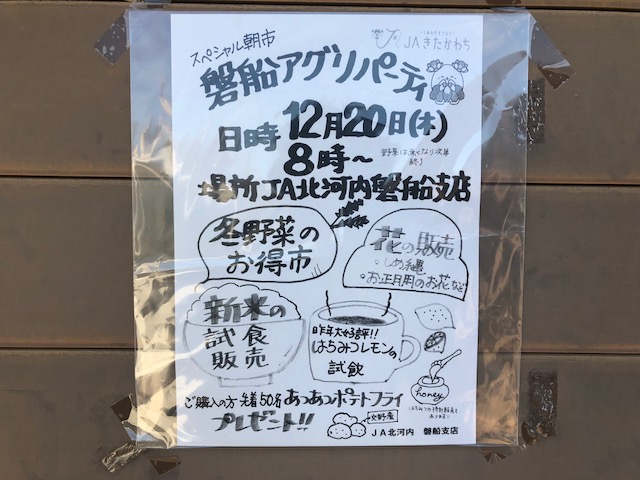 スペシャル朝市
JAきたかわち
磐船アグリパーティ
日時 12月20日(木)
8時〜
野菜は、無くなり次第
終了
場所 JA北河内磐船支店
冬野菜の
お得市
花の販売
・しめ縄
・お正月用のお花など
新米の
試食
販売
昨年大好評!!
はちみつレモンの
試飲
honey
はちみつの特別販売も
あります!
ご購入の方 先着50名 あつあつポテトフライ
プレゼント!!
交野産
JA北河内 磐船支店